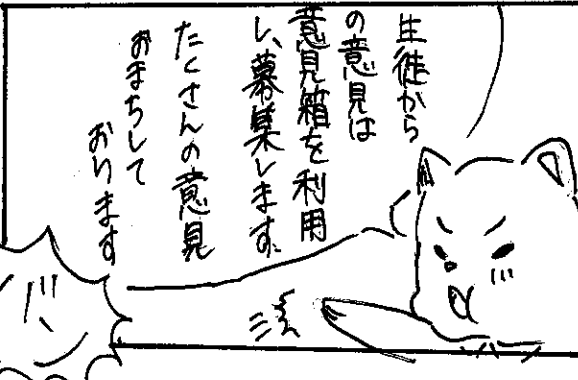 生徒から
の意見は
意見箱を利用
し、募集します。
たくさんの意見
おまちして
おります